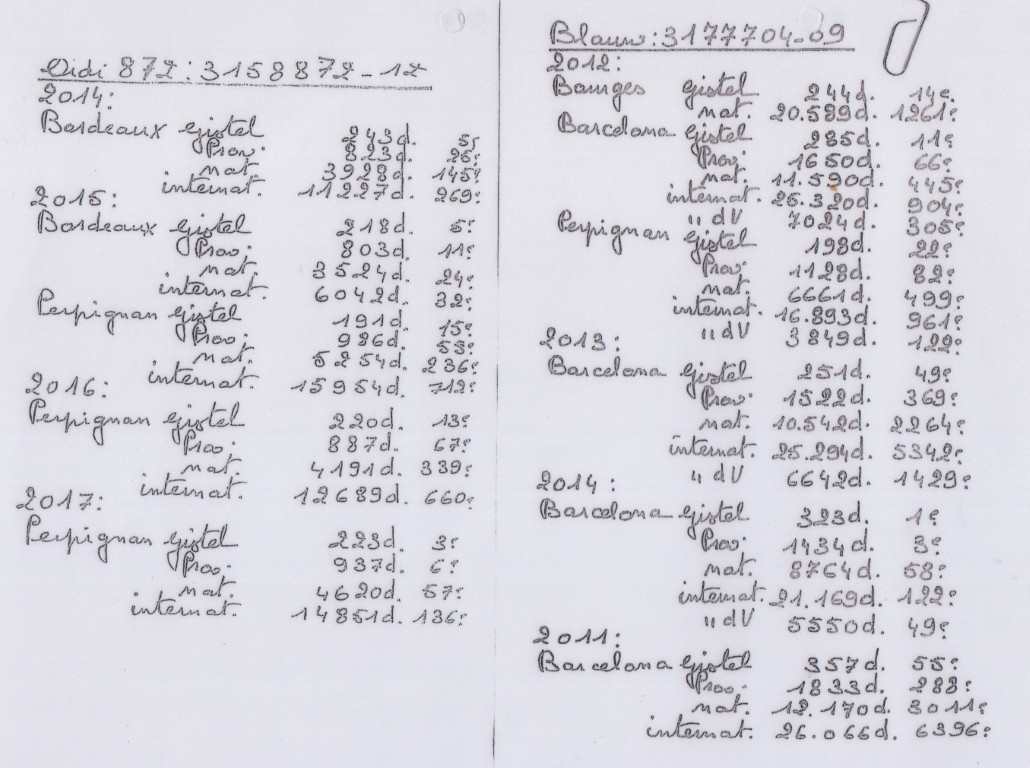 Didi 872: 3158872-12
2014:
Bordeaux Gistel 243d. 5e
Prov. 823d. 25e
nat. 3928d. 145e
internat. 11227d. 269e
2015:
Bordeaux Gistel 218d. 5e
Prov. 803d. 11e
nat. 3524d. 24e
internat. 6042d. 32e
Perpignan Gistel 191d. 15e
Prov. 986d. 53e
nat. 5254d. 236e
internat. 15954d. 712e
2016:
Perpignan Gistel 220d. 13e
Prov. 887d. 67e
nat. 4191d. 339e
internat. 12689d. 660e
2017:
Perpignan Gistel 223d. 3e
Prov. 937d. 6e
nat. 4620d. 57e
internat. 14851d. 136e
Blauw: 3177704-09
2012:
Bourges Gistel 244d. 14e
nat. 20.589d. 1261e
Barcelona Gistel 285d. 11e
Prov. 1650d. 66e
nat. 11.590d. 445e
internat. 25.320d. 904e
" dV 7024d. 305e
Perpignan Gistel 198d. 22e
Prov. 1128d. 82e
nat. 6661d. 499e
internat. 16.893d. 961e
" dV 3849d. 122e
2013:
Barcelona Gistel 251d. 49e
Prov. 1522d. 369e
nat. 10.542d. 2264e
internat. 25.294d. 5342e
" dV 6642d. 1429e
2014:
Barcelona Gistel 323d. 1e
Prov. 1434d. 3e
nat. 8764d. 58e
internat. 21.169d. 122e
" dV 5550d. 49e
2011:
Barcelona Gistel 357d. 55e
Prov. 1833d. 288e
nat. 12.170d. 3011e
internat. 26.066d. 6396e